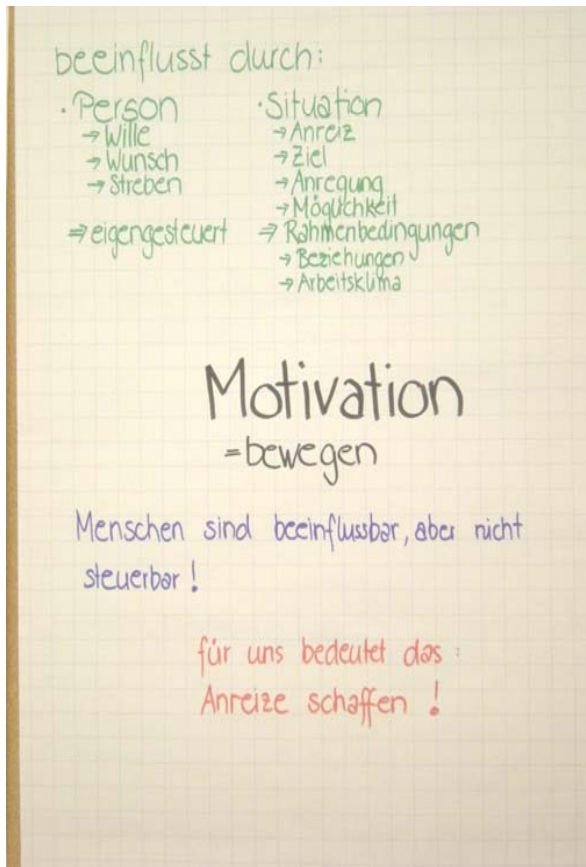 beeinflusst durch:
· Person
→ Wille
→ Wunsch
→ Streben
⇒ eigengesteuert
· Situation
→ Anreiz
→ Ziel
→ Anregung
→ Möglichkeit
⇒ Rahmenbedingungen
→ Beziehungen
→ Arbeitsklima
Motivation
= bewegen
Menschen sind beeinflussbar, aber nicht
steuerbar!
für uns bedeutet das:
Anreize schaffen!